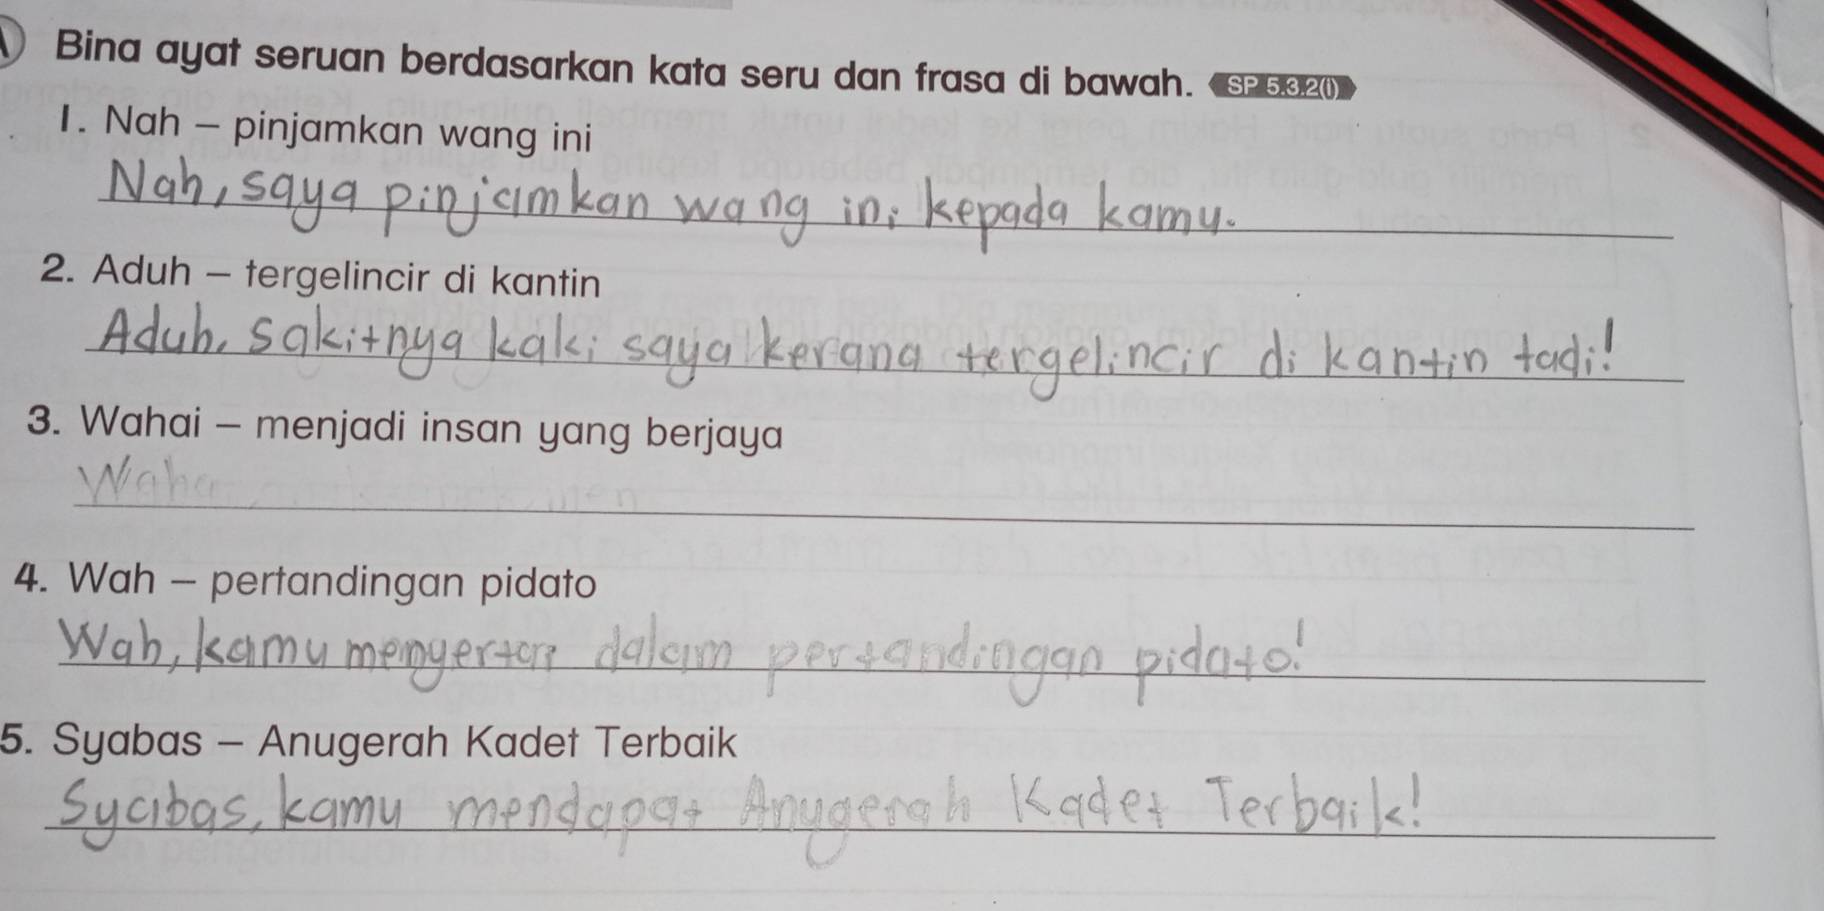 Bina ayat seruan berdasarkan kata seru dan frasa di bawah. SP 5.3.2(i)
1. Nah – pinjamkan wang ini
Nah, saya pinjamkan wang ini kepada kamu.
2. Aduh – tergelincir di kantin
Aduh, sakitnya kaki saya kerana tergelincir di kantin tadi!
3. Wahai – menjadi insan yang berjaya
Waha
4. Wah – pertandingan pidato
Wah, kamu menyertai dalam pertandingan pidato!
5. Syabas – Anugerah Kadet Terbaik
Syabas, kamu mendapat Anugerah Kadet Terbaik!